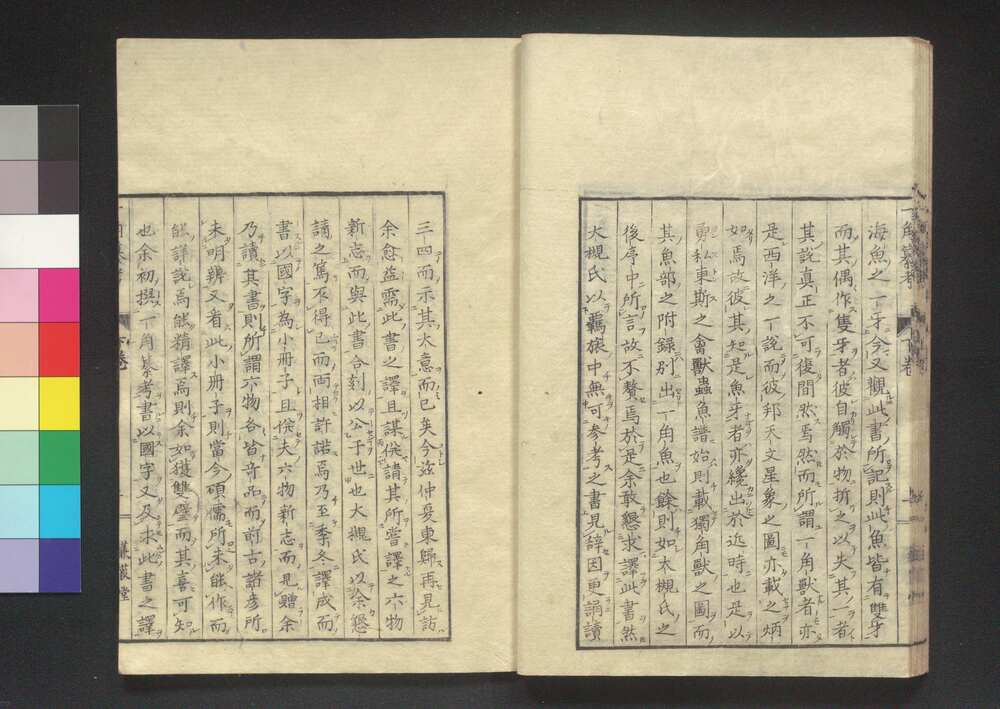 海魚之一牙今又觀此書所記則此魚皆有雙牙
而其偶作隻牙者彼自觸於物折之以失其一者
其說真正不可復間然焉然而所謂一角獸者亦
是西洋之一說而彼邦天文星象之圖亦載之炳
如焉故彼其知是魚牙者亦纔出於近時也是以
東斯之禽獸蟲魚譜始則載獨角獸之圖而
其魚部之附録別出一角魚也餘則如大槻氏之
後序中所言故不贅焉於是余敢懇求譯此書然
大槻氏以羈旅中無可参考之書見辞因更謂讀
三四而示其大意而已矣今茲仲夏東歸再見訪
余愈益需此書之譯且謀俟請其所嘗譯之六物
新志而與此書合刻以公于世也大槻氏以余懇
請之篤不得已而両相許諾焉乃至季冬譯成而
書以國字為小冊子且俟夫六物新志而見贈余
乃讀其書則所謂六物各皆竒品而前古諸彦所
未明辨又看此小冊子則當今碩儒所未能作而
能詳說焉能精譯焉則余如獲雙璧而其喜可知
也余初撰一角纂考書以國字又及求此書之譯
一角纂考
下卷